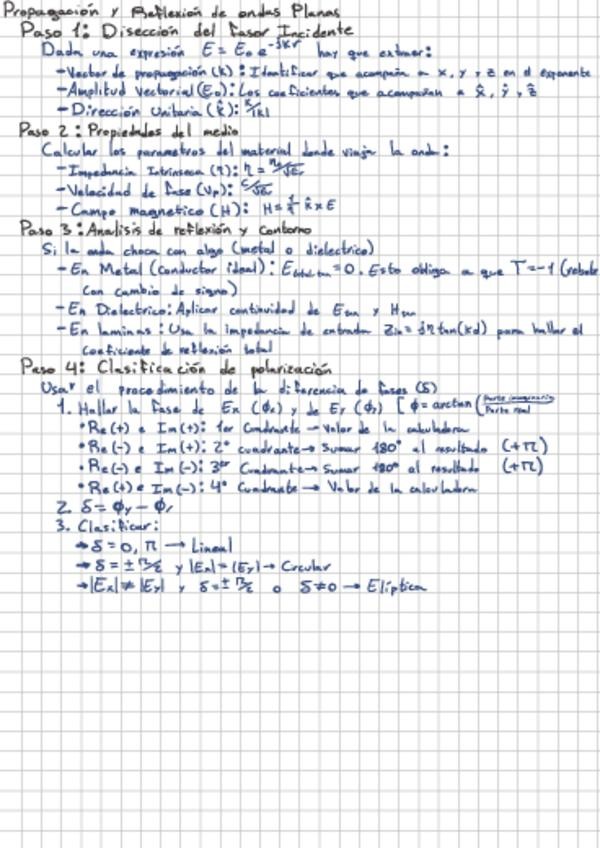 Propagación y Reflexión de ondas Planas
Paso 1: Disección del fasor Incidente
Dada una expresión E = E₀ e^-jkr hay que extraer:
- Vector de propagación (k): Identificar que acompaña a x, y, z en el exponente
- Amplitud Vectorial (E₀): Los coeficientes que acompañan a x̂, ŷ, ẑ
- Dirección Unitaria (k̂): k/|k|
Paso 2: Propiedades del medio
Calcular los parametros del material donde viaja la onda:
- Impedancia Intrinseca (η): η = η₀/√εr
- Velocidad de fase (Vp): c/√εr
- Campo magnetico (H): H = 1/η k̂ x E
Paso 3: Analisis de reflexión y contorno
Si la onda choca con algo (metal o dielectrico)
- En Metal (conductor ideal): = 0. Esto obliga a que Γ = -1 (rebote
con cambio de signo)
- En Dielectrico: Aplicar continuidad de Etan y Htan
- En laminas: Usa la impedancia de entrada Zin = jη tan(kd) para hallar el
coeficiente de reflexión total
Paso 4: Clasificación de polarización
Usar el procedimiento de la diferencia de fases (δ)
1. Hallar la fase de Ex (ϕx) y de Ey (ϕy) [ϕ = arctan (Parte imaginaria/Parte real
• Re(+) e Im(+): 1er Cuadrante → Valor de la calculadora
• Re(-) e Im(+): 2º cuadrante → Sumar 180° al resultado (+π)
• Re(-) e Im(-): 3er Cuadrante → Sumar 180° al resultado (+π)
• Re(+) e Im(-): 4º Cuadrante → Valor de la calculadora
2. δ = ϕy - ϕx
3. Clasificar:
→ δ = 0, π → Lineal
→ δ = ± π/2 y |Ex| = |Ey| → Circular
→ |Ex| ≠ |Ey| y δ = ± π/2 o δ ≠ 0 → Elíptica